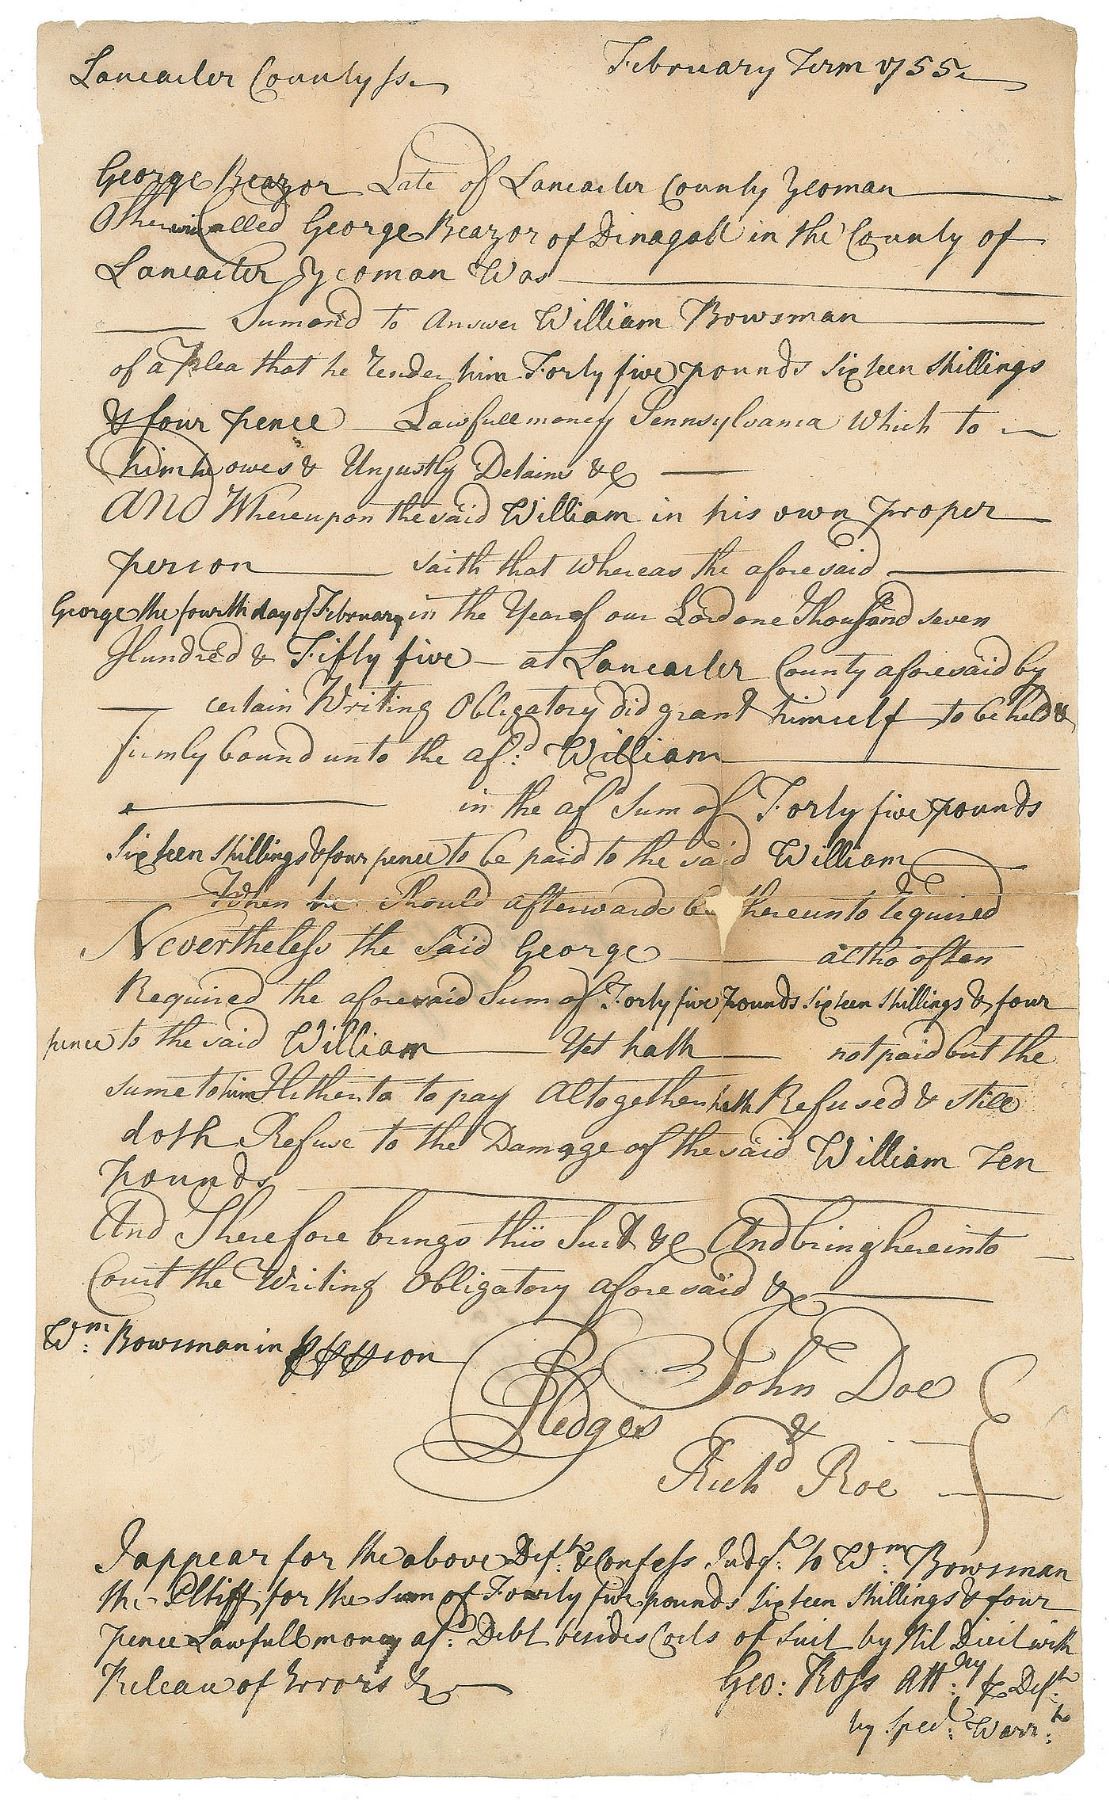 Lancaster County ss.
February Term 1755
George Beazor Late of Lancaster County Yeoman
Otherwise Called George Beazor of Dinagall in the County of
Lancaster Yeoman Was
Sumon'd to Answer William Bowsman
of a Plea that he render him Forty five pounds sixteen shillings
& four pence Lawfull money Pennsylvania Which to
him he owes & Unjustly Detains &c
AND Whereupon the said William in his own proper
person saith that whereas the aforesaid
George the fourth day of February in the Year of our Lord one Thousand seven
Hundred & Fifty five at Lancaster County aforesaid by
certain Writing Obligatory did grant himself to be held &
firmly bound unto the afsd: William
in the afsd Sum of Forty five pounds
sixteen shillings & four pence to be paid to the said William
When he Should afterwards be thereunto required
Nevertheless the Said George altho often
Required the aforesaid Sum of Forty five pounds sixteen shillings & four
pence to the said William Yet hath not paid but the
same to him Hitherto to pay Altogether hath Refused & still
doth Refuse to the Damage of the said William Ten
pounds
And Therefore brings this Suit &c And bring here into
Court the Writing Obligatory aforesaid &
Wm: Bowsman in person
Pledges
John Doe
&
Richd Roe
I appear for the above Deft: & Confess Judgt: to Wm Bowsman
the Pltiff for the sum of Fourty five pounds sixteen shillings & four
pence Lawfull money afd: Debt besides Costs of Suit by Nil Dicit with
Release of Errors &c
Geo: Ross Att:ny p Deft:
by Specl: Warrt: